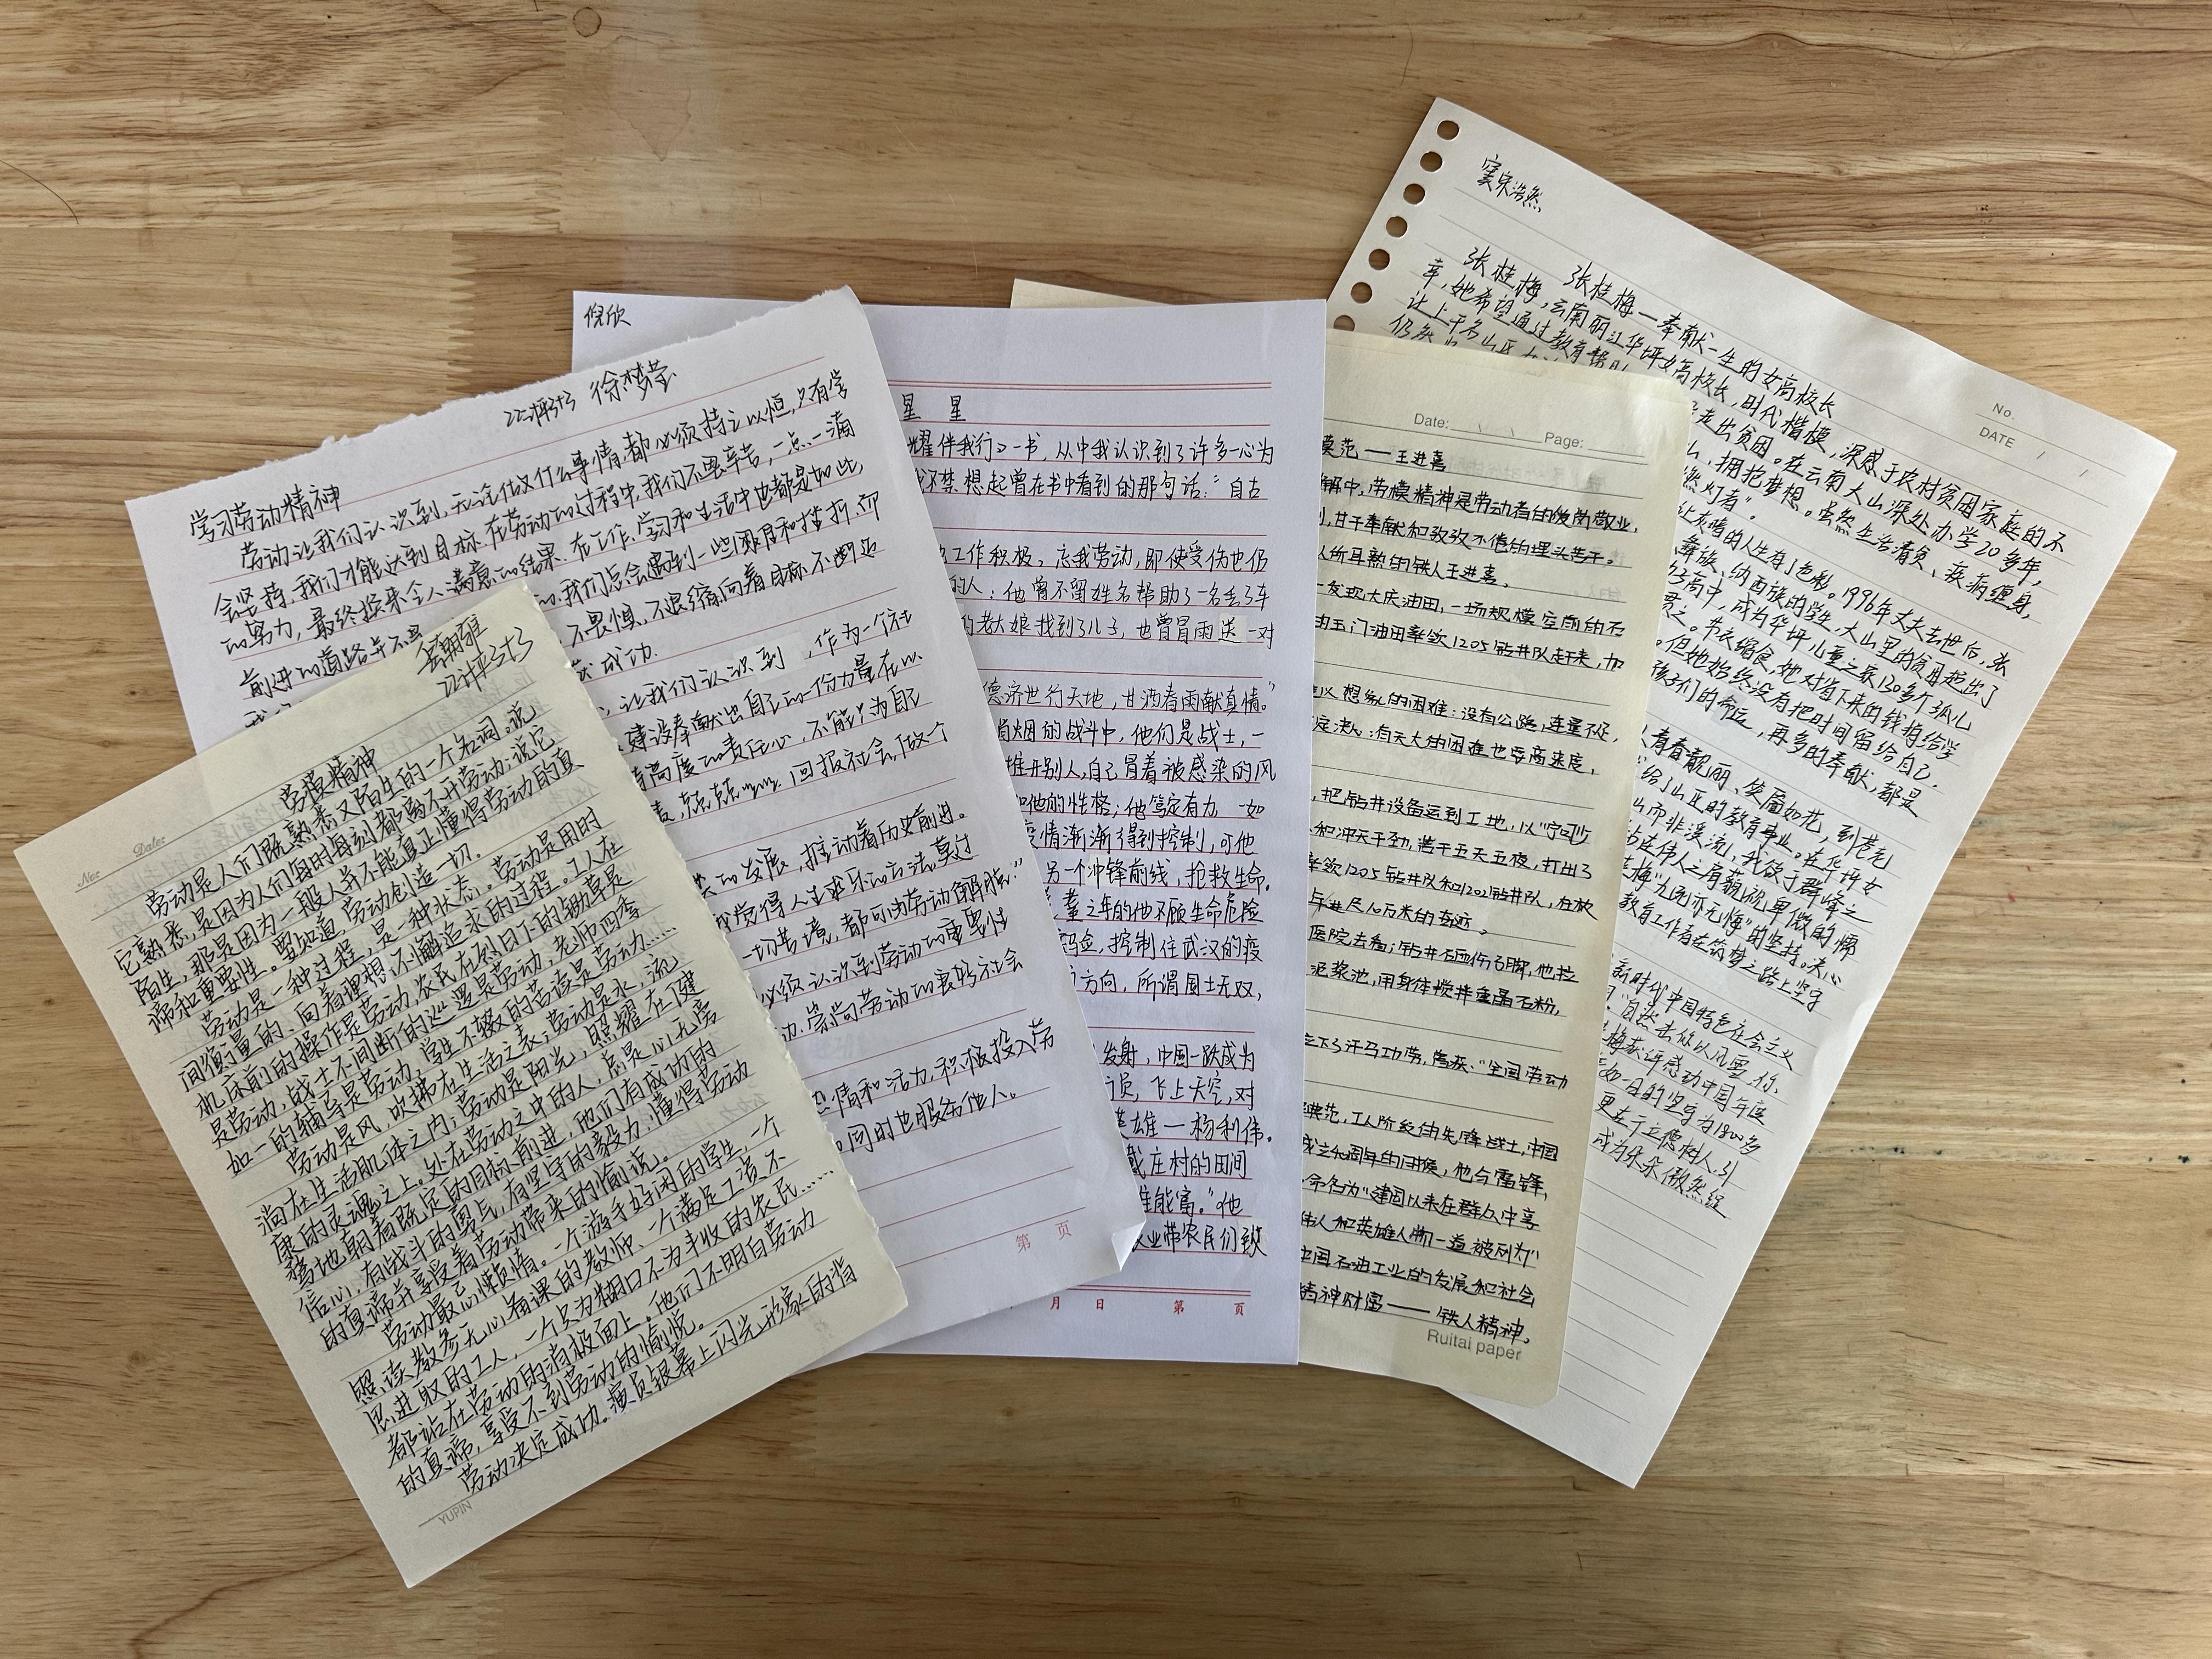 No.
Date:
22计科3+3
劳模精神
劳动是人们既熟悉又陌生的一个名词。说
它熟悉,是因为人们每时每刻都离不开劳动;说它
陌生,那是因为一般人并不能真正懂得劳动的真
谛和重要性。要知道,劳动创造一切。
劳动是一种过程,是一种状态。劳动是用时
间衡量的、向着理想不懈追求的过程。工人在
机床前的操作是劳动,农民在烈日下的锄草是
是劳动,战士不间断的巡逻是劳动,老师四季
如一的辅导是劳动,学生不辍的苦读是劳动……
劳动是风,吹拂在生活之表;劳动是水,流
淌在生活肌体之内;劳动是阳光,照耀在健
康的灵魂之上。处在劳动之中的人,总是心无旁
骛地朝着既定的目标前进,他们有成功的
信心,有战斗的勇气,有坚守的毅力,懂得劳动
的真谛并享受着劳动带来的愉悦。
劳动最忌懒惰。一个游手好闲的学生,一个
照读教参无心备课的教师、一个满足工资不
思进取的工人,一个只为糊口不为丰收的农民……
都站在劳动的消极面上。他们不明白劳动
的真谛,享受不到劳动的愉悦。
劳动决定成功。演员银幕上闪光形象的背
YUPIN
徐梦莹
学习劳动精神
劳动让我们认识到,无论做什么事情,都必须持之以恒,只有学
会坚持,我们才能达到目标.在劳动的过程中,我们不畏辛苦,一点一滴
的努力,最终换来令人满意的结果.在工作、学习和生活中也都是如此,
前进的道路并不 我们总会遇到一些困难和挫折.而
不畏惧,不退缩,向着目标不断迈
成功.
,让我们认识到 ,作为一个社
建设奉献出自己的一份力量.在以
高度的责任心,不能只为自己
回报社会,做个
的发展,推动着历史前进。
我觉得人生求乐的方法,莫过
一切苦境,都可为劳动解脱:”
必须认识到劳动的重要性
崇尚劳动的良好社会
热情和活力,积极投入劳
的同时也服务他人。
第 页
倪欣
星 星
耀伴我行》一书,从中我认识到了许多一心为
我不禁想起曾在书中看到的那句话:“自古
工作积极,忘我劳动,即使受伤也仍
的人:他曾不留姓名帮助了一名丢了车
的老大娘找到了儿子,也曾冒雨送一对
德济世行天地,甘洒春雨献真情。”
硝烟的战斗中,他们是战士,一
推开别人,自己冒着被感染的风
他的性格;他笃定有力 一如
疫情渐渐得到控制,可他
另一个冲锋前线,抢救生命.
之年的他不顾生命危险
控制住武汉的疫
方向,所谓国士无双,
发射,中国一跃成为
员,飞上天空,对
英雄一杨利伟。
庄村的田间
能富。”他
业带农民们致
月 日 第 页
Date: / / Page:
模范——王进喜
解中,劳模精神是劳动者的爱岗敬业,
甘于奉献和孜孜不倦的埋头苦干。
所耳熟的铁人王进喜.
发现大庆油田,一场规模空前的石
由玉门油田率领1205钻井队赶来,加
以想象的困难:没有公路,车量不足,
定决心:有天大的困难也要高速度,
把钻井设备运到工地,以“宁可少
和冲天干劲,苦干五天五夜,打出了
率领1205钻井队和1202钻井队,在极
年进尺10万米的奇迹。
医院去看;钻井石砸伤了脚,他拉
泥浆池,用身体搅拌重晶石粉,
立下了汗马功劳,荣获“全国劳动
典范,工人阶级的先锋战士,中国
成立60周年的时候,他与雷锋,
命名为“建国以来在群众中享
伟人和英雄人物一道被列为”
中国石油工业的发展和社会
精神财富——铁人精神,
Ruitai paper
窦宋浩然
No.
DATE / /
张桂梅—奉献一生的女高校长
张桂梅,云南丽江华坪女高校长,时代楷模,深感于农村贫困家庭的不
幸,她希望通过教育帮助 走出贫困。在云南大山深处办学20多年,
让上千名山区 ,拥抱梦想。虽然生活清贫、疾病缠身,
仍然 燃灯者”。
让灰暗的人生有了色彩。1996年丈夫去世后,张
族、纳西族的学生,大山里的贫困超出了
高中,成为华坪儿童之家130多个孤儿
节衣缩食,她对省下来的钱捐给学
但她始终没有把时间留给自己,
孩子们的命运,再多的奉献,都是
青春靓丽、笑靥如花,到苍老
给了山区的教育事业。在华坪女
山而非溪流,我欲于群峰之
站在伟人之肩藐视卑微的懦
桂梅“九死亦无悔”的坚持。决心
教育工作者在筑梦之路上坚守
新时代中国特色社会主义
“自然击你以风雪,你
梅获评感动中国年度
如一日的坚守为1800多
更在于立德树人,引
成为朵朵傲然绽